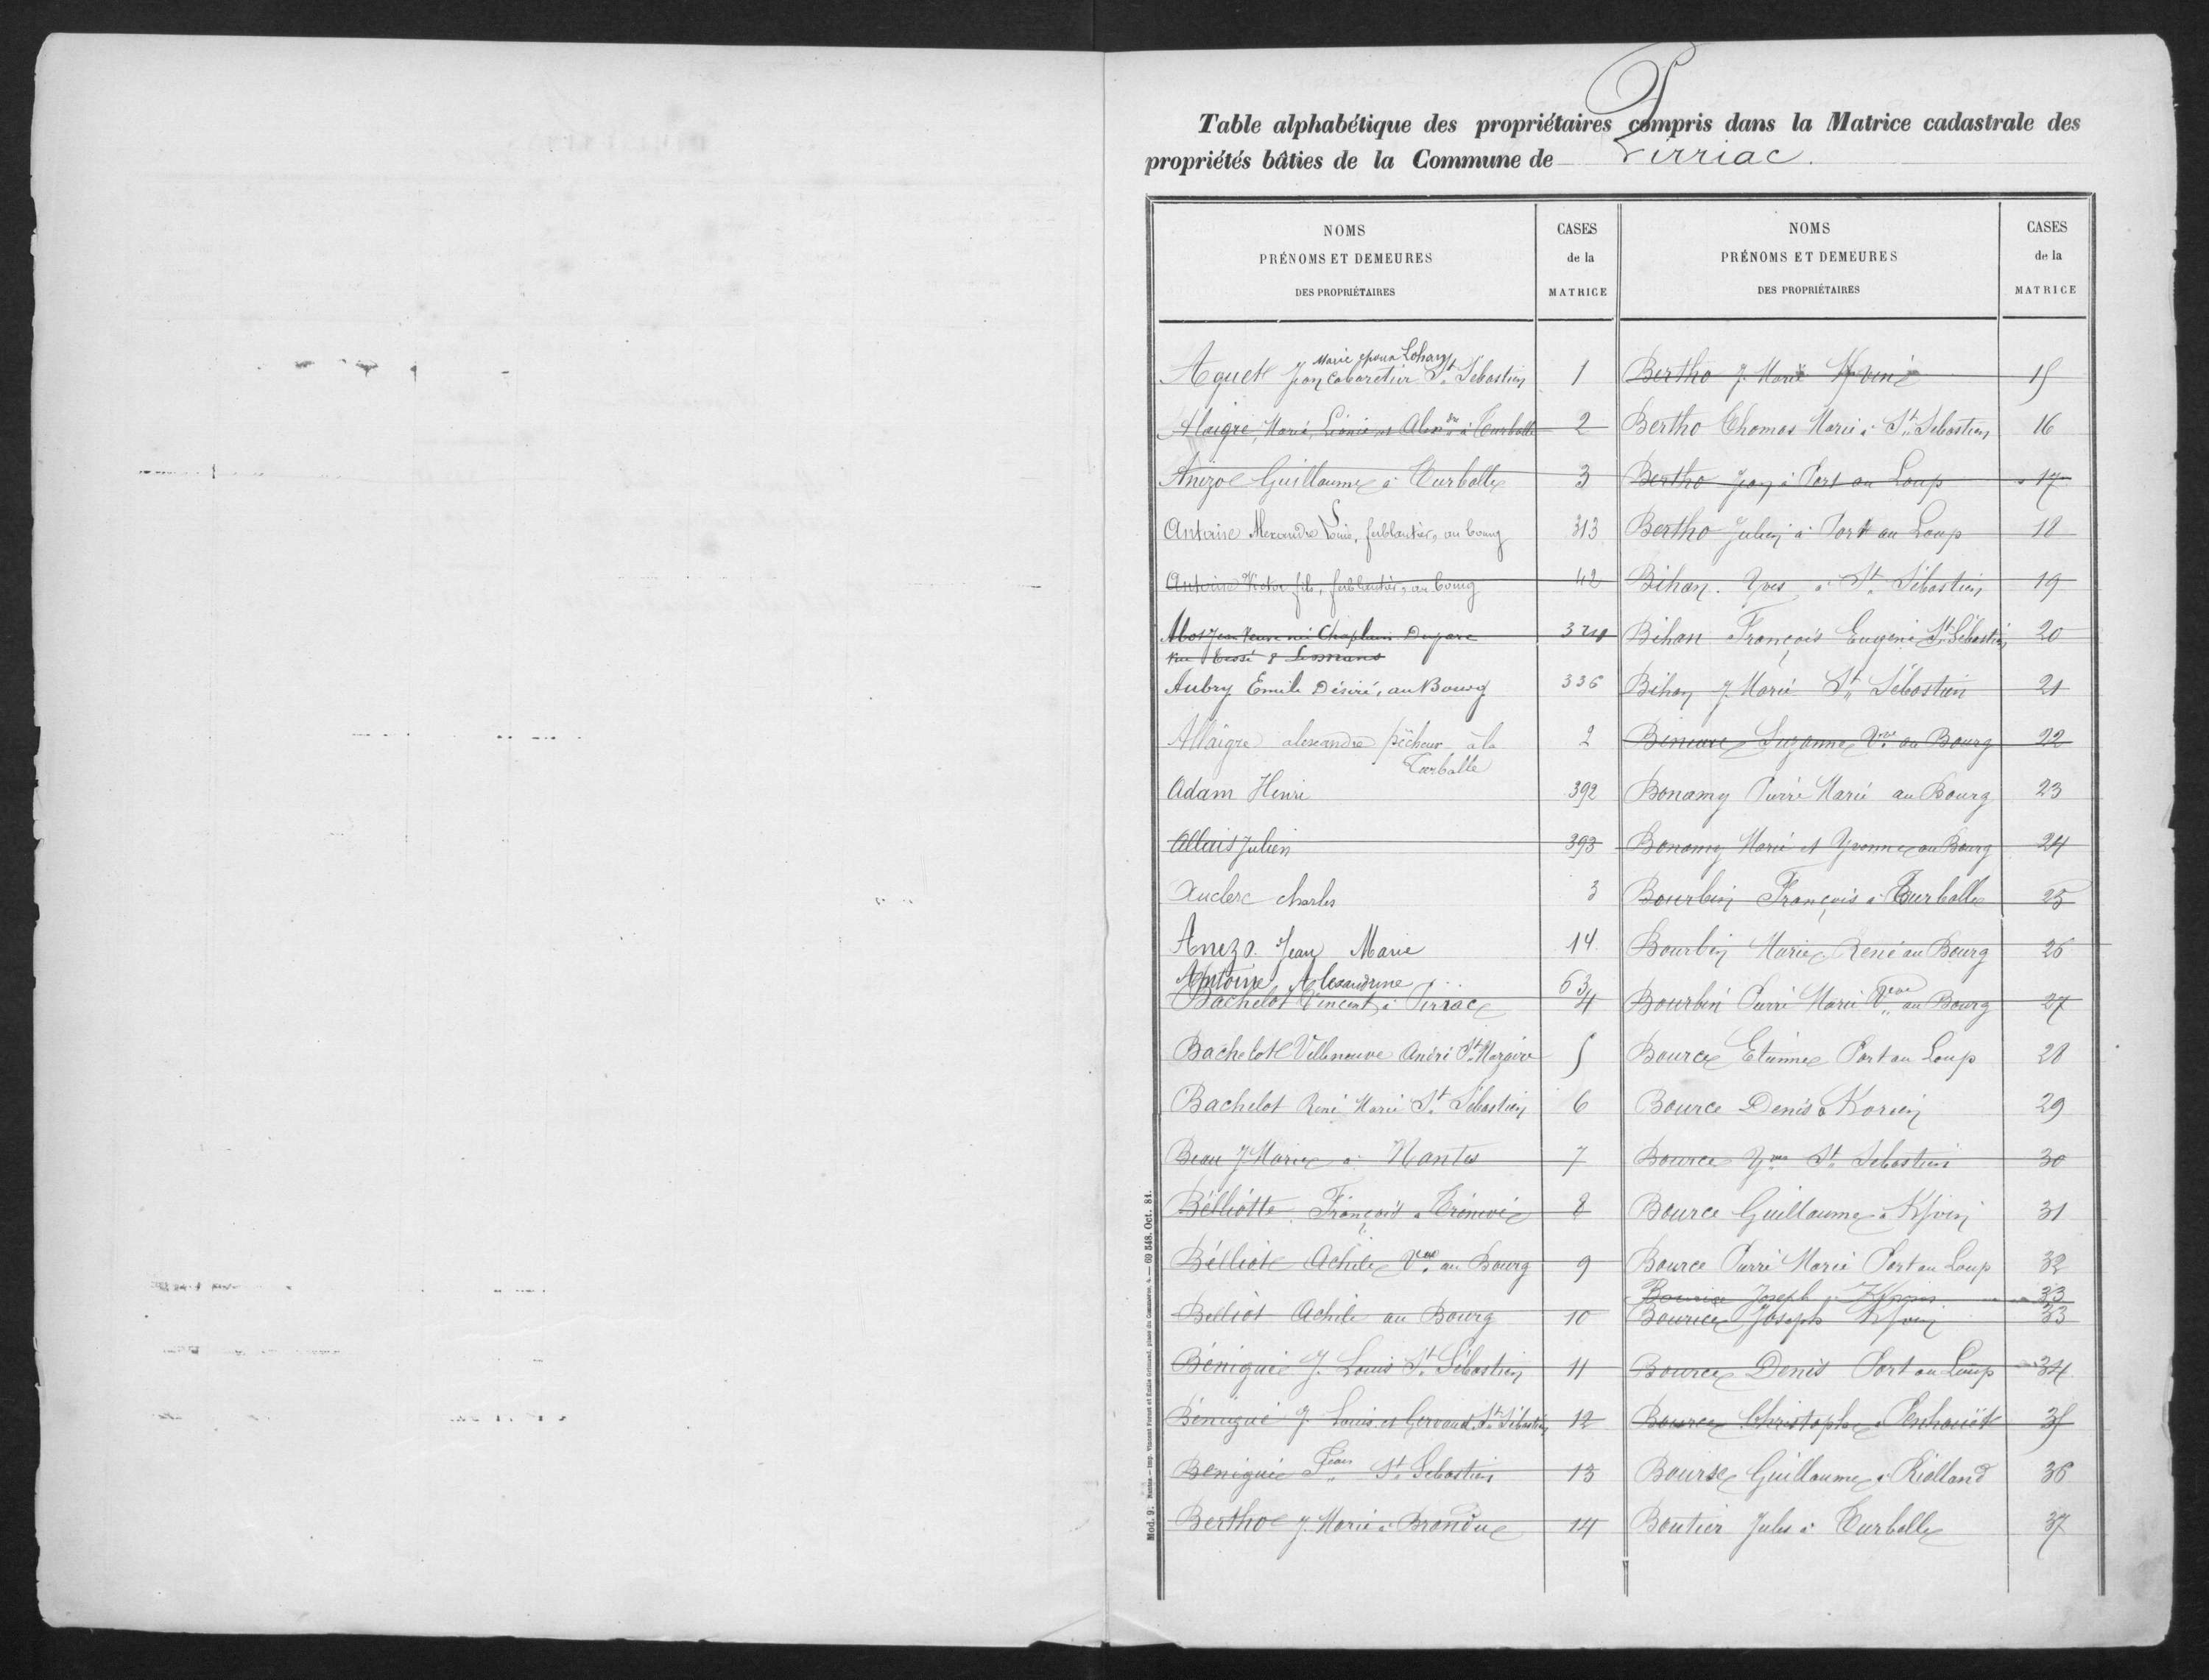 Table alphabétique des propriétaires compris dans la Matrice cadastrale des
propriétés bâties de la Commune de Pirriac.
NOMS
PRÉNOMS ET DEMEURES
DES PROPRIÉTAIRES
CASES
de la
MATRICE
Marie époux Lehary
Aguet Jean cabaretier St Sébastien 1
Alaigre, Marie, Léonie et Alexdre à Turballe 2
Anizot Guillaume à Turballe 3
Antoine Alexandre Louis, ferblantier, au bourg 313
Antoine Victor fils, ferblantier, au bourg 42
Abot Jean Veuve née Chaplain Duparc 324
Rue Bessé 8 Lemans
Aubry Emile Désiré, au Bourg 336
Allaigre alexandre pêcheur à la 2
Turballe
Adam Henri 392
Allais Julien 393
Auclerc charles 3
Anezo. Jean Marie 14
Antoine Alexandrine 63
Bachelot Vincent à Pirriac 4
Bachelot Villeneuve André St Nazaire 5
Bachelot René Marie St Sébastien 6
Beau J. Marie à Nantes 7
Bélliotte François à 8
Bélliot Achile Vve au Bourg 9
Belliot Achile au Bourg 10
Béniguié J. Louis St Sébastien 11
Béniguié J. Louis et Gervaud St Sébastien 12
Béniguié Jean St Sébastien 13
Bertho J. Marie à Brandu 14
NOMS
PRÉNOMS ET DEMEURES
DES PROPRIÉTAIRES
CASES
de la
MATRICE
Bertho J. Marie 15
Bertho Thomas Marie à St Sébastien 16
Bertho Jean à Port au Loup 17
Bertho Julien à Port au Loup 18
Bihan. Yves à St Sébastien 19
Bihan François Eugène St Sébastien 20
Bihan J. Marie St Sébastien 21
Suzanne Vve au Bourg 22
Bonamy Pierre Marie au Bourg 23
Bonamy Marie et Yvonne au Bourg 24
Bourbin François à Turballe 25
Bourbin Marie René au Bourg 26
Bourbin Pierre Marie Veuve au Bourg 27
Bource Etienne Port au Loup 28
Bource Denis à 29
Bource St Sébastien 30
Bource Guillaume à 31
Bource Pierre Marie Port au Loup 32
Bource Joseph 33
Bource Joseph 33
Bource Denis Port au Loup 34
Bource Christophe à Penhouët 35
Bourse Guillaume à Rielland 36
Boutier Jules à Turballe 37
Mod. 9. Nantes — imp. Vincent Forest et Emile Grimaud, place du Commerce, 4. — 69 548. Oct. 81.